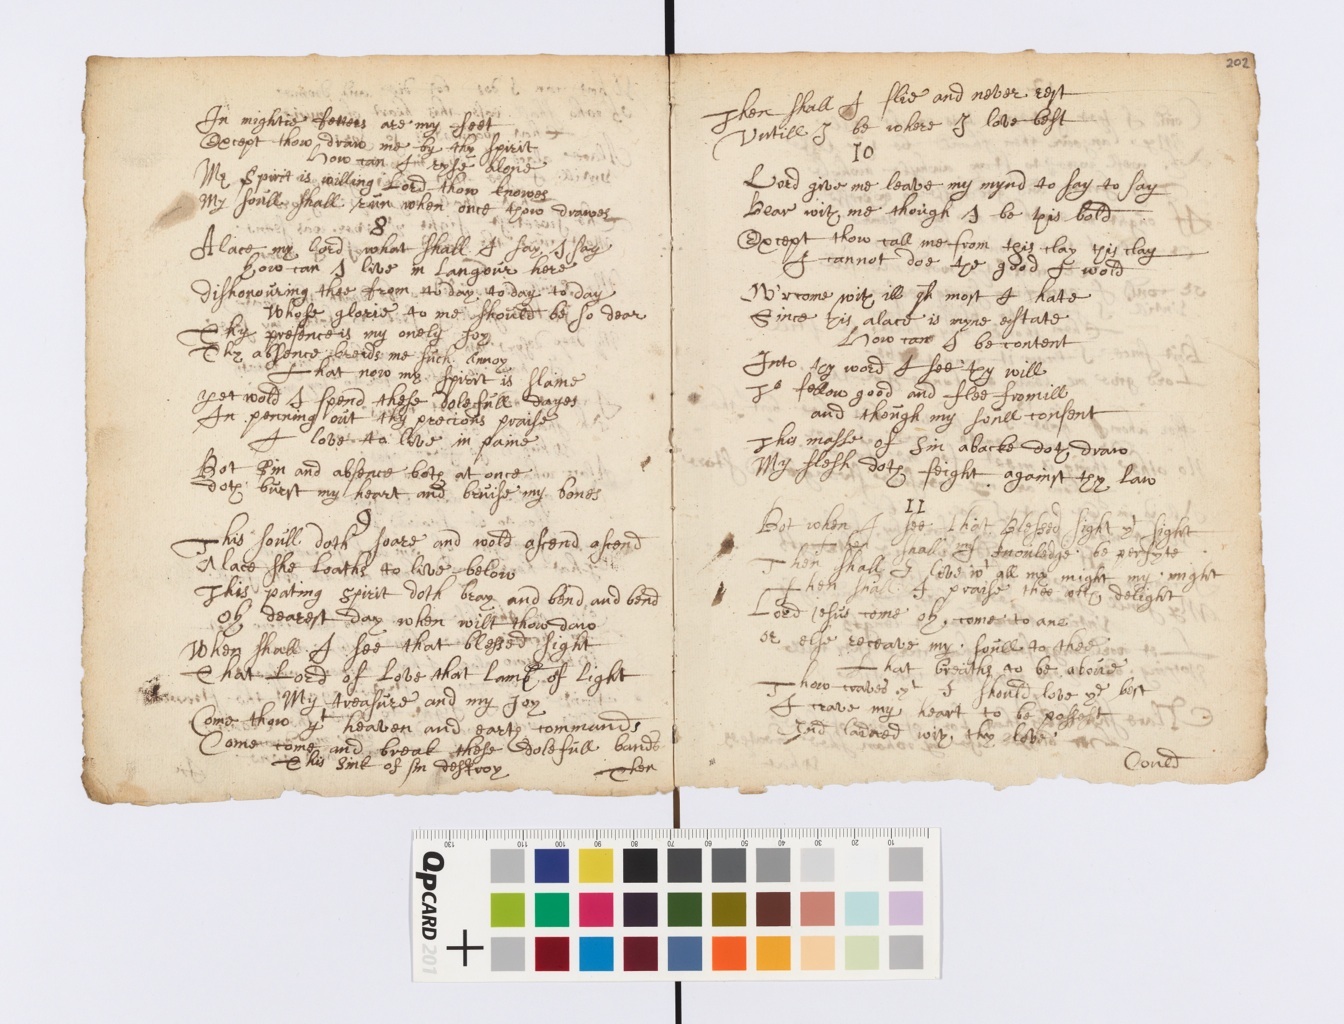 In mightie fetters are my feet
Except thow draw me by thy spirit
How can I ryse alone
My Spirit is willing Lord thow knowes
My soull shall run when once thow drawes
8
Alace my lord what shall I say I say
How can I live in Langour here
Dishonouring thee from to day to day to day
Whose glorie to me should be so dear
Thy presence is my onely joy
Thy absence breids me such annoy
That now my spirit is slaine
Yet wold I spend these dolefull dayes
In penning out thy precious praise
I love to live in paine
Bot Sin and absence both at once
doth burst my heart and bruise my bones
9
This soull doth soare and wold ascend ascend
Alace she loaths to live below
This pating spirit doth bray and bend and bend
Oh dearest day when wilt thow daw
When shall I see that blessed sight
That Lord of Love that Lamp of light
My treasure and my Joy
Come thow yt heaven and earth commands
Come come and break these dolefull bands
This sink of sin destroy
Then
202
Then shall I flie and never rest
Untill I be where I love best
10
Lord give me leave my mynd to say to say
Bear with me though I be this bold
Except thow call me from this clay this clay
I cannot doe the good I wold
O'rcome with ill qh most I hate
Since this alace is myne estate
How can I be content
Into thy word I see thy will
To follow good and flee from ill
and though my soull consent
This masse of Sin abacke doth draw
My flesh doth feight against thy law
11
Bot when I see that blessed sight yt sight
Then shall my knowledge be perfyte
Then shall I live wt all my might my might
Then shall I praise thee with delight
Lord Jesus come oh come to ane
or else receave my soull to thee
That breaths to be above
Thow craves yt I should love ye best
I crave my heart to be possest
And ladned with thy love